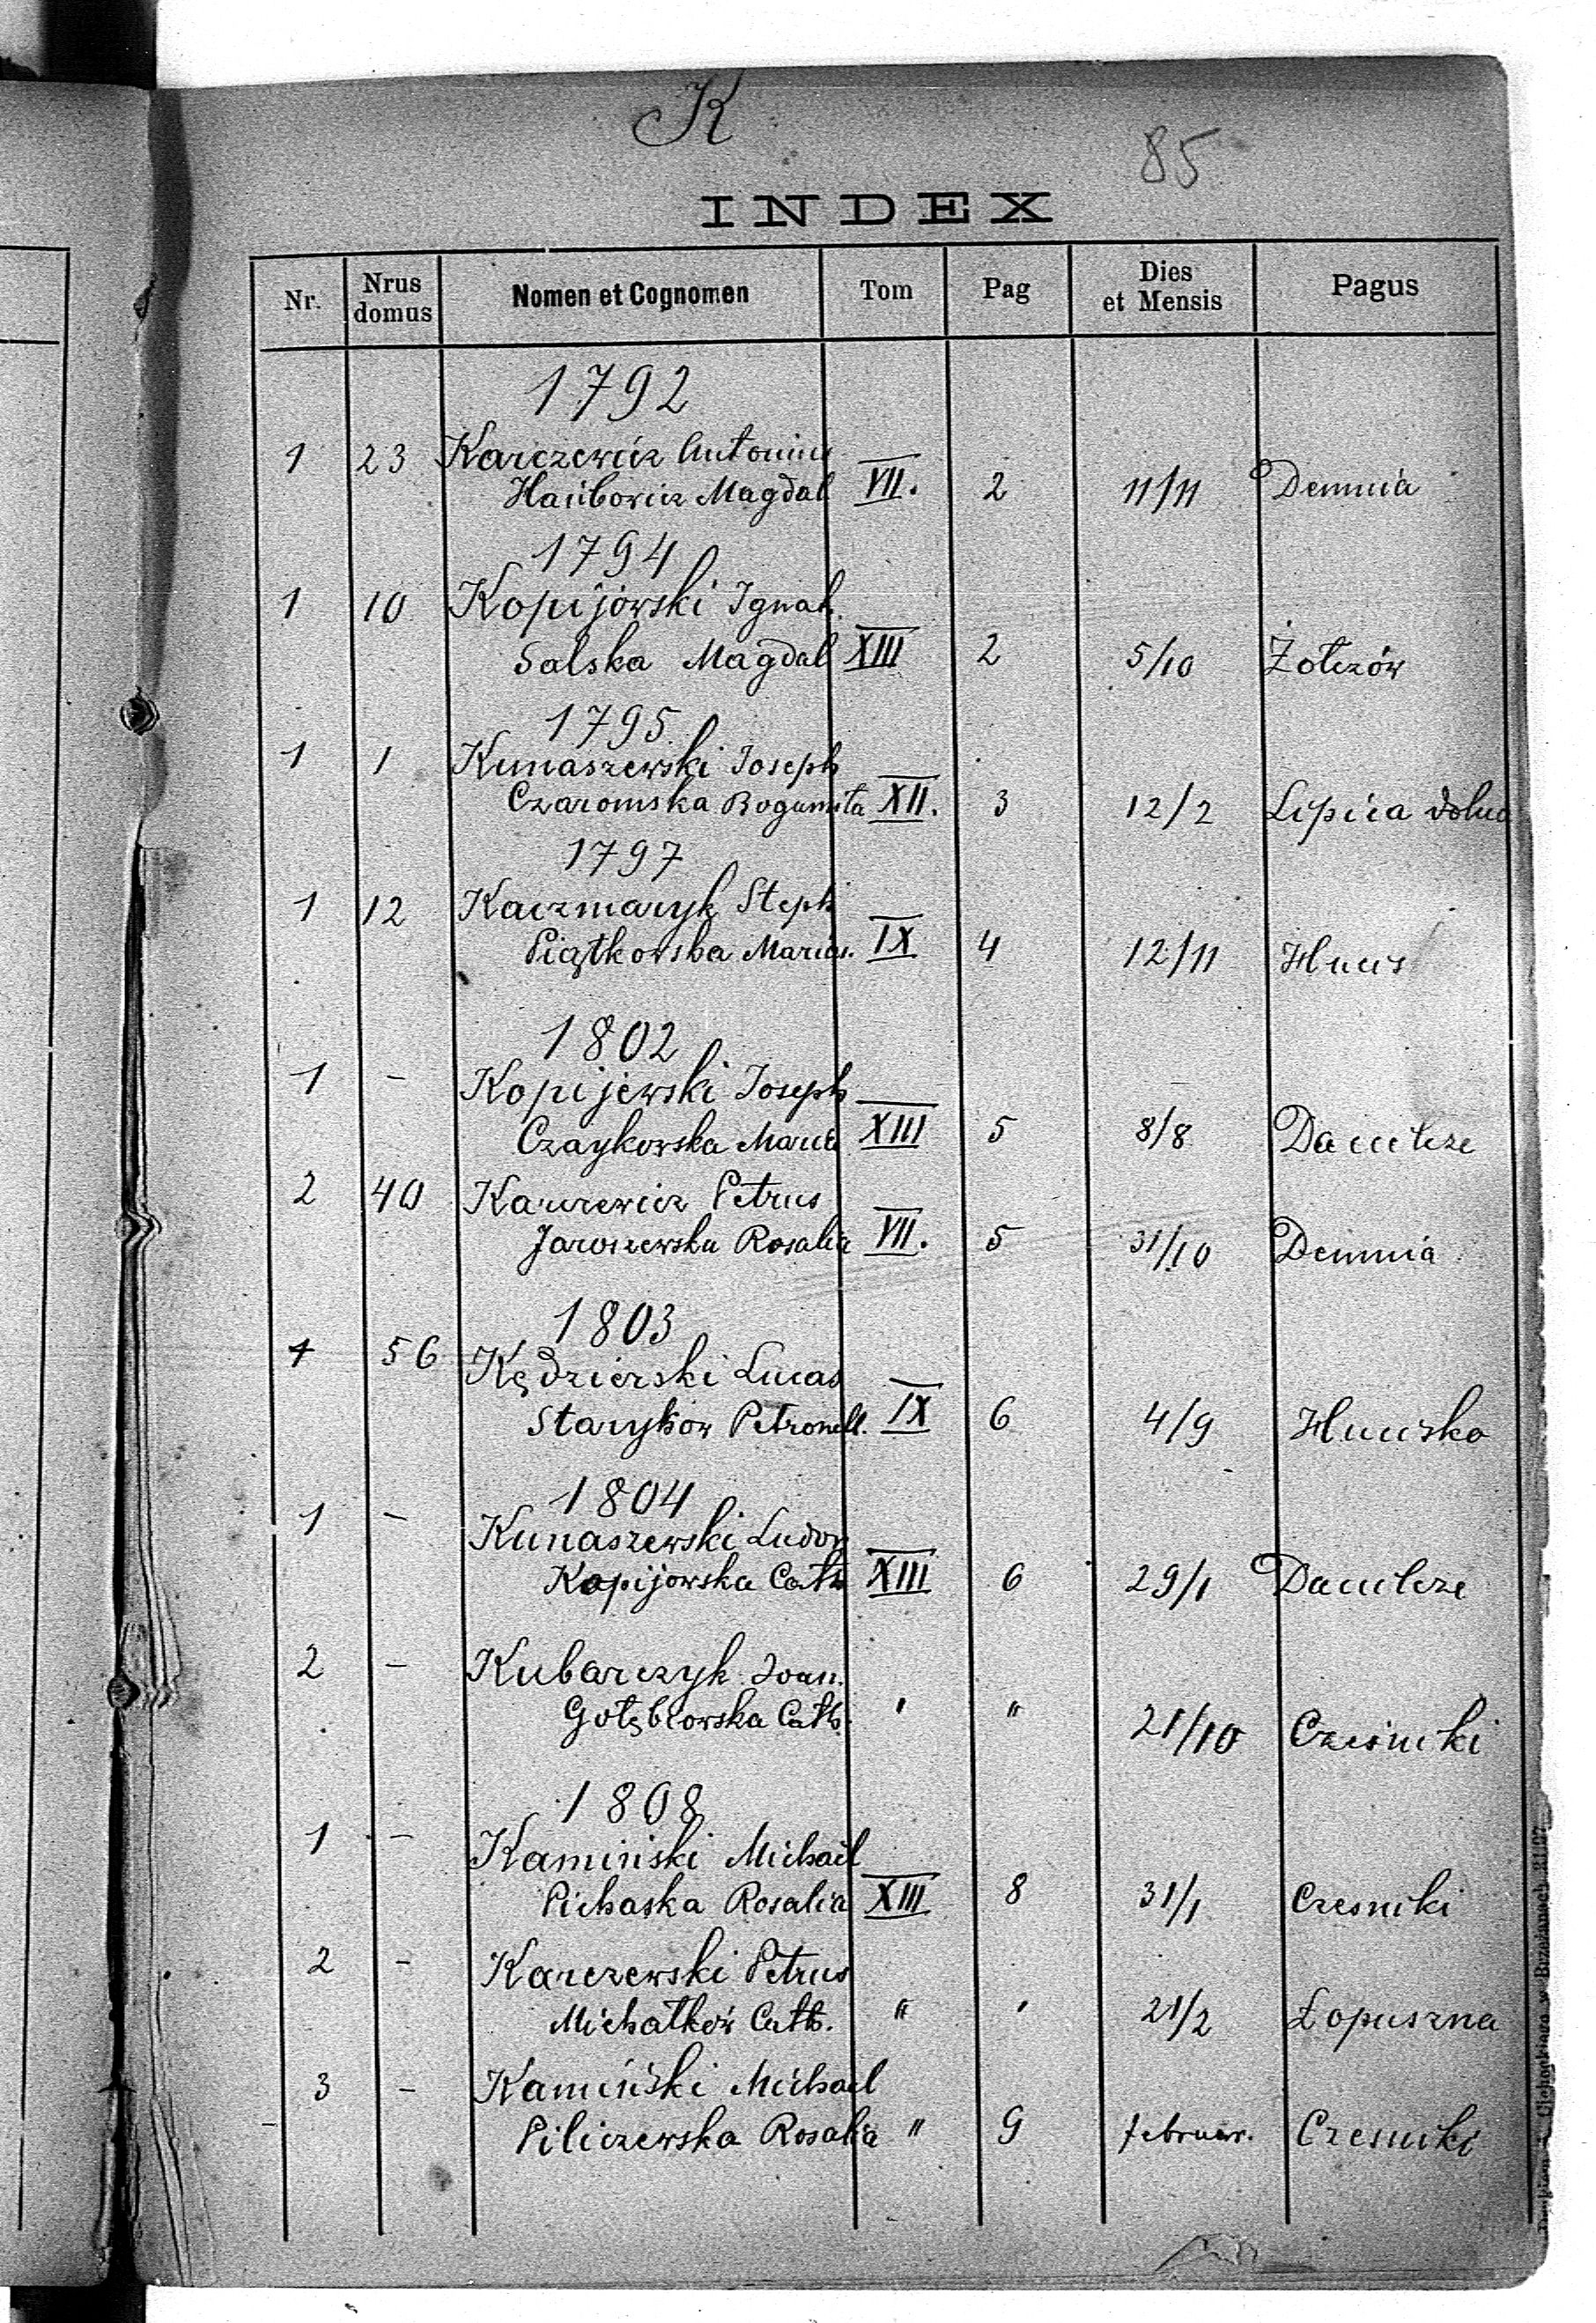 K
85
INDEX
Nr. Nrus domus Nomen et Cognomen Tom Pag Dies et Mensis Pagus
1792
1 23 Karczewicz Antonius
Haiibowicz Magdal VII. 2 11/11 Demnia
1794
1 10 Kopijowski Ignat.
Salska Magdal XIII 2 5/10 Żołczów
1795
1 1 Kunaszewski Joseph
Czaromska Bogumiła XII. 3 12/2 Lipica dolna
1797
1 12 Kaczmaryk Steph
Piątkowska Marian. IX 4 12/11 Hucis
1802
1 - Kopijewski Joseph
Czaykowska Maria XIII 5 8/8 Danilcze
2 40 Karczewicz Petrus
Jaroszewska Rosalia VII. 5 31/10 Demnia
1803
1 56 Kędzierski Lucas
Staryków Petronell. IX 6 4/9 Hucisko
1804
1 - Kunaszewski Ludov
Kopijowska Cath XIII 6 29/1 Danilcze
2 - Kubarczyk Joan.
Gołębiowska Cath. " " 21/10 Cześniki
1808
1 - Kamiński Michael
Pichaska Rosalia XIII 8 31/1 Czesniki
2 - Karczewski Petrus
Michałków Cath. " " 21/2 Łopuszna
3 - Kamiński Michael
Piliczewska Rosalia " 9 februar. Czesniki